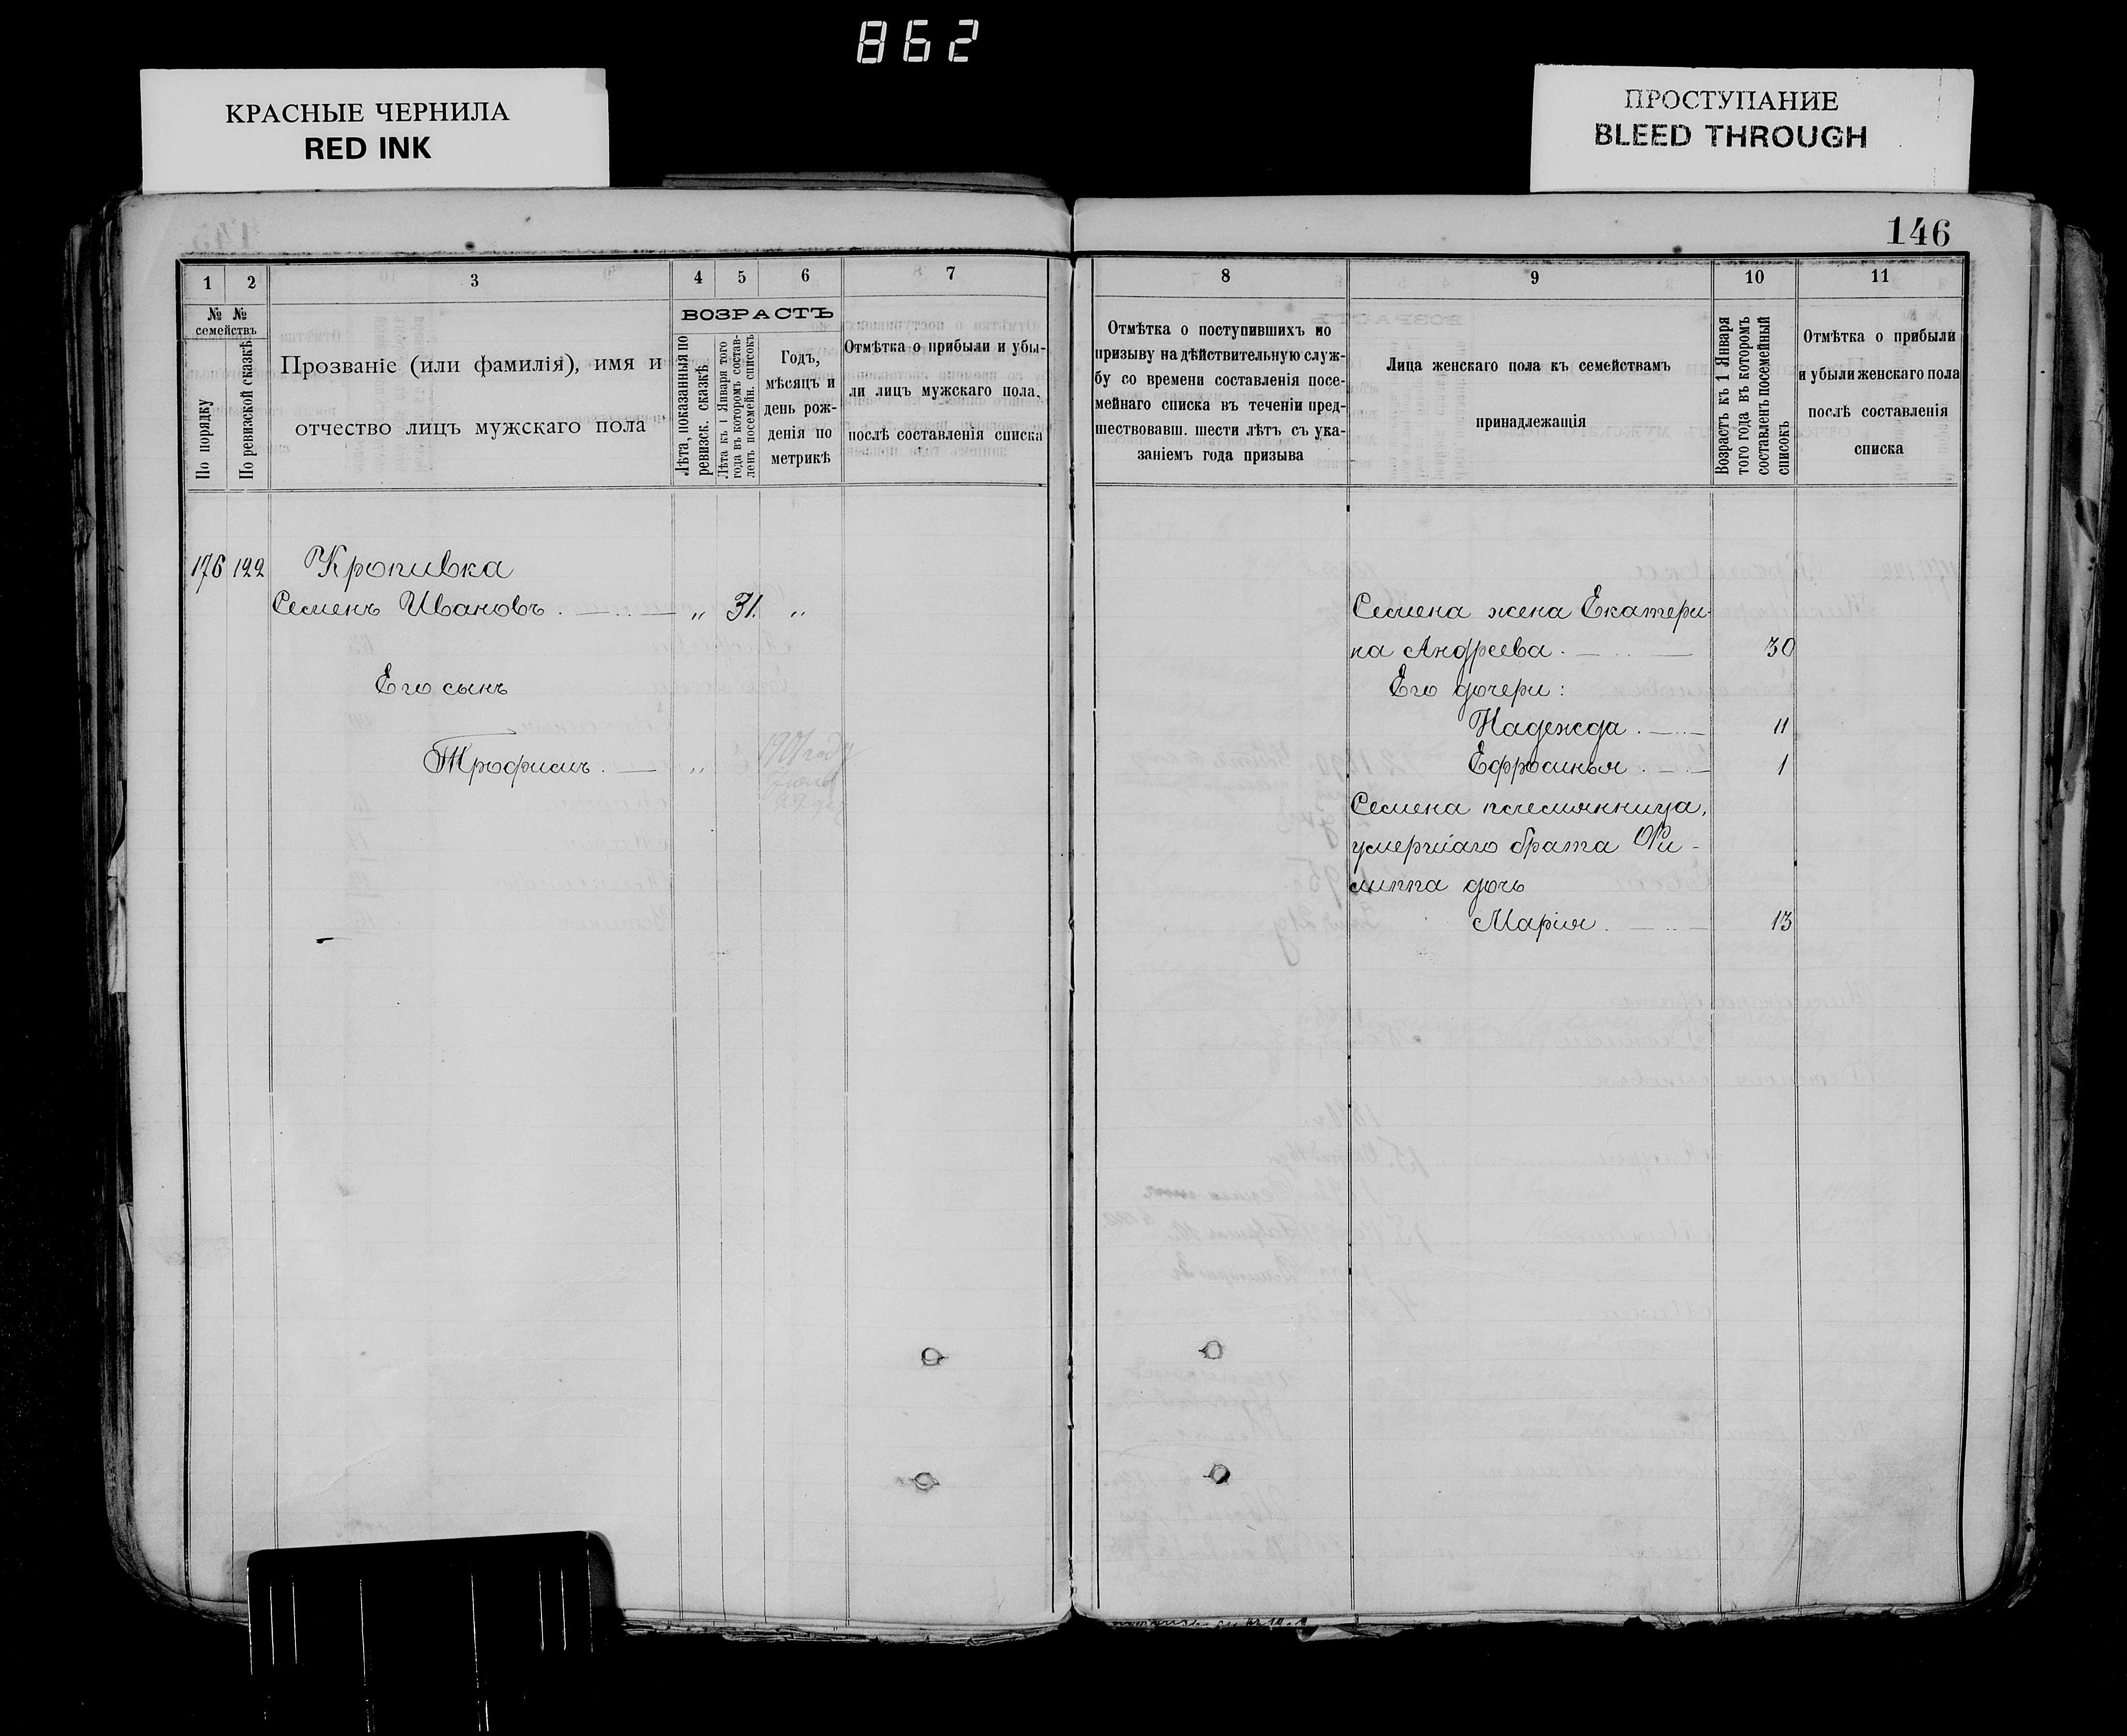 862
КРАСНЫЕ ЧЕРНИЛА
RED INK
ПРОСТУПАНИЕ
BLEED THROUGH
146
1 2 3 4 5 6 7
№ №
семействъ
По порядку
По ревизской сказкѣ
Прозваніе (или фамилія), имя и
отчество лицъ мужскаго пола
ВОЗРАСТЪ
Лѣта, показанныя по
ревизск. сказкѣ
Лѣта къ 1 Января того
года въ которомъ состав-
ленъ посемейн. списокъ
Годъ,
мѣсяцъ и
день рож-
денія по
метрикѣ
Отмѣтка о прибыли и убы-
ли лицъ мужского пола,
послѣ составленія списка
176 122 Кропивка
Семенъ Ивановъ . „ 31. „
Его сынъ
Трофимъ . „ 1901 году
8 9 10 11
Отмѣтка о поступившихъ по
призыву на дѣйствительную служ-
бу со времени составленія посе-
мейнаго списка въ теченіи пред-
шествовавш. шести лѣтъ съ ука-
заніемъ года призыва
Лица женскаго пола къ семействамъ
принадлежащія
Возрастъ къ 1 Января
того года въ которомъ
составленъ посемейный
списокъ
Отмѣтка о прибыли
и убыли женскаго пола
послѣ составленія
списка
Семена жена Екатери-
на Андреева . 30
Его дочери :
Надежда . 11
Ефросинья . 1
Семена племянница,
умершаго брата Фи-
липпа дочь
Марія . 13